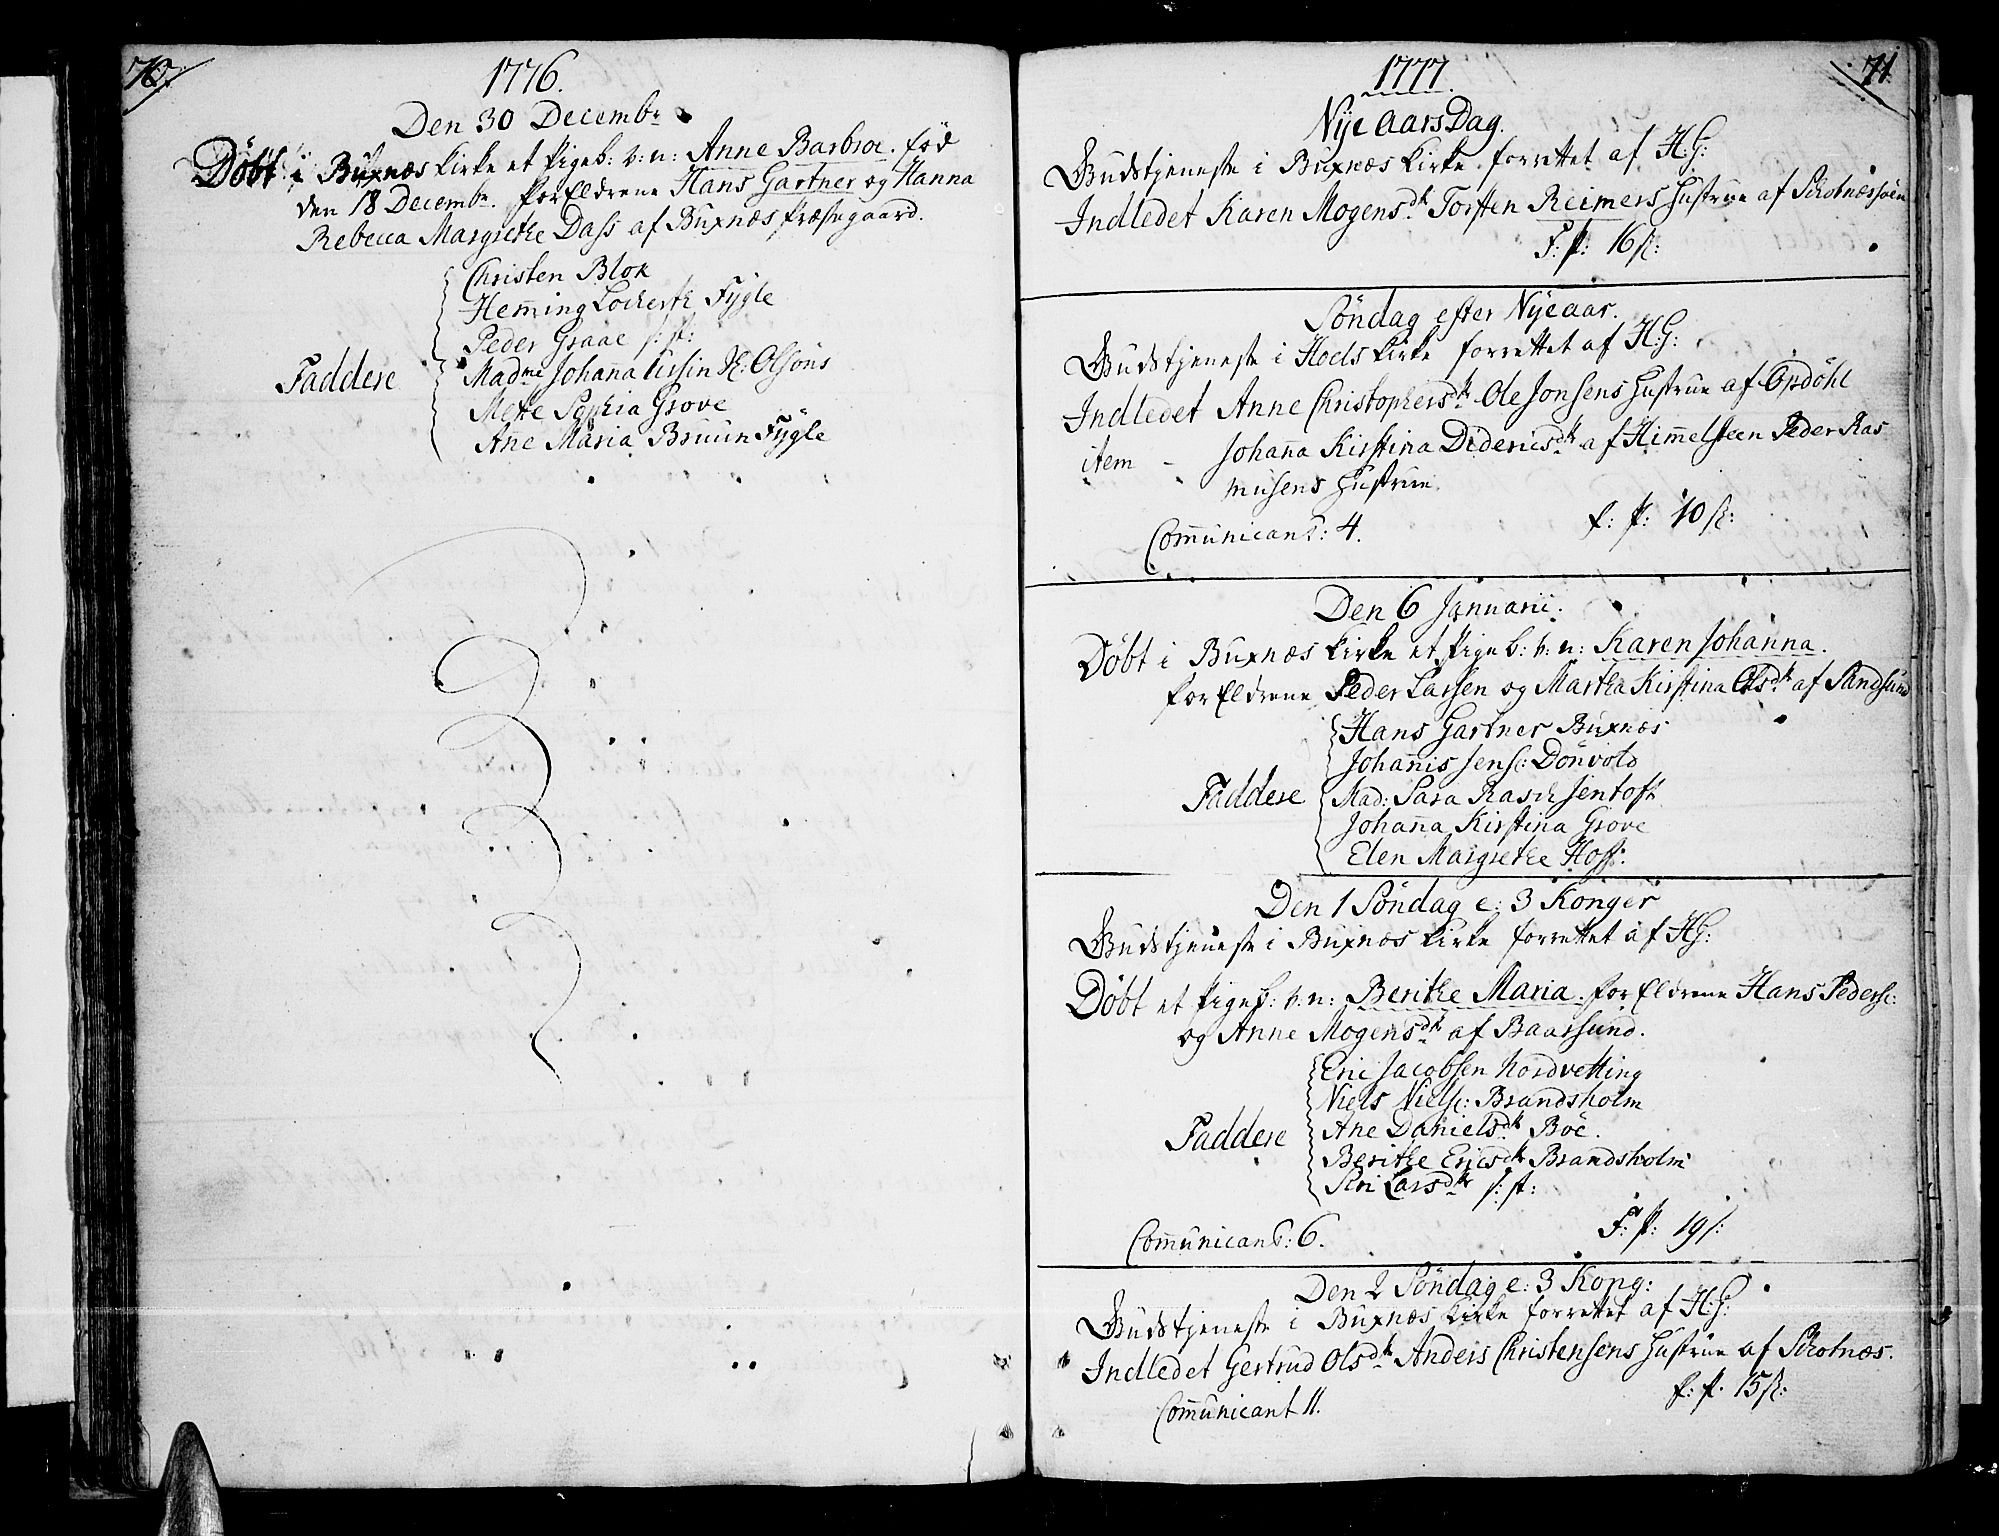 70.
1776.
Den 30 Decembr
Döbt i Buxnæs Kirke et Pigeb: v: n: Anne Barbroe. fød
den 18 Decembr. forEldrene Hans Gartner og Hanna
Rebecca Margrethe Dass af Buxnæs Præstegaard.
Christen Blok
Hem̄ing Lockerth Fygle
Peder Graae s: st:
Faddere
Madme Johan̄a Ursin H: Olsons
Mette Sophia Grove
Ane Maria Bruun Fygle
71
1777.
Nye Aars Dag.
Gudstjeneste i Buxnæs Kirke forrettet af H: G:
Indledet Karen Mogensdtr Torsten Reimers Hustrue af
F: p: 16 s:
Söndag efter Nyeaar.
Gudstjeneste i Hoels Kirke forrettet af H: G:
Indledet Anne Christophersdtr Ole Jonsens Hustrue af Opdöhl
item - Johan̄a Kirstina Didericsdtr af Him̄elsteen Peder Ras
musens Hustrue.
Com̄unicant: 4.
f: p: 10 s:
Den 6 Januarii.
Döbt i Buxnæs Kirke et Pigeb: v: n: Karen Johanna.
forEldrene Peder Larsen og Martha Kirstina Olsdtr af Sandsund
Hans Gartner Buxnæs
Johan̄is Jens: Dönvold
Faddere
Mad: Sara Rasch Jentoft
Johan̄a Kirstina Grove
Elen Margrethe Hoff.
Den 1 Söndag e: 3 Konger
Gudstjeneste i Buxnæs Kirke forrettet af H G:
Döbt et Pigeb: v: n: Berithe Maria. forEldrene Hans Peders:
og Anne Mogensdtr af Baarsund.
Eric Jacobsen Nordvetting
Niels Niels: Brandsholm
Faddere
Ane Danielsdtr Böe.
Berithe Ericsdtr Brandsholm
Siri Larsdtr s: st:
Com̄unicant: 6.
F: p: 19 s:
Den 2 Söndag e: 3 Kong:
Gudstjeneste i Buxnæs Kirke forrettet af H: G:
Indledet Gertrud Olsdtr Anders Christensens Hustrue af Skotnæs.
Com̄unicant 11.
f: p. 15 s: